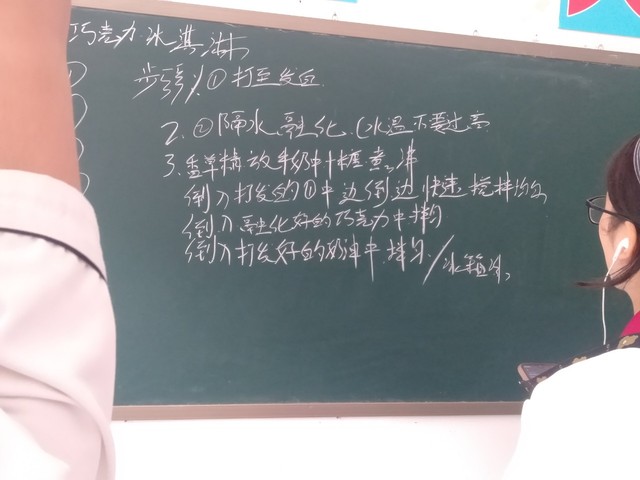 巧克力冰淇淋
① 步骤1.①打至发白
2.②隔水融化.(水温不要过高
3.香草精放牛奶中+糖煮沸
倒入打发的①中边倒边快速搅拌均匀
倒入融化好的巧克力中拌匀
倒入打发好的奶油中.拌匀/冰箱冷